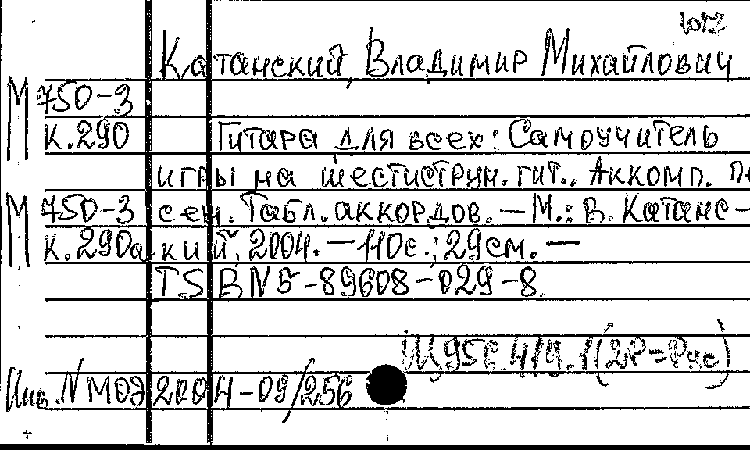 Катанский, Владимир Михайлович
М 750-3
К.290 Гитара для всех: Самоучитель
игры на шестиструн. гит., Аккомп. пе
М 750-3 сен. Табл. аккордов. — М.: В. Катанс-
К.290а кий, 2004. — 110с.; 29см. —
ISBN 5-89608-029-8.
Щ956.4/9.1(2Р=Рус)
Инв. N МОЭ 2004-09/256